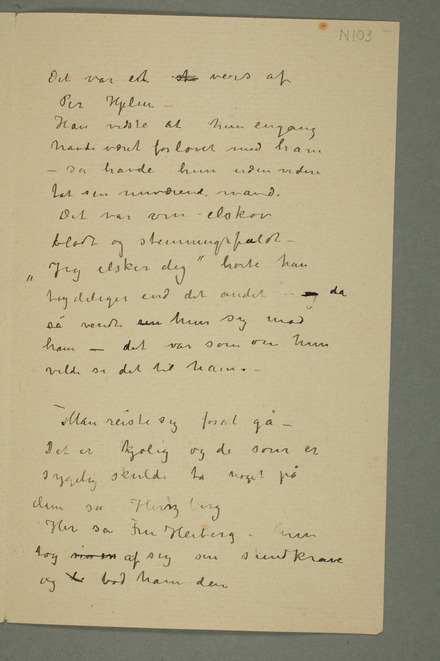 N103
Det var et vers af
Per Hjelm –
Han vidste at hun engang
havde været forlovet med ham
– så havde hun uden videre
tat sin nuværende mand.
Det var om elskov
blødt og stemningsfuldt –
„Jeg elsker dig" hørte han
tydeliger end det andet – da
så vendte hun sig mod
ham – det var som om hun
vilde si det til ham. –
Man reiste sig forat gå –
Det er kjølig og de som er
sygelig skulde ta noget på
dem sa Hertzberg
Her sa Fru Heiberg – hun
tog af sig sin skindkrave
og bød ham den